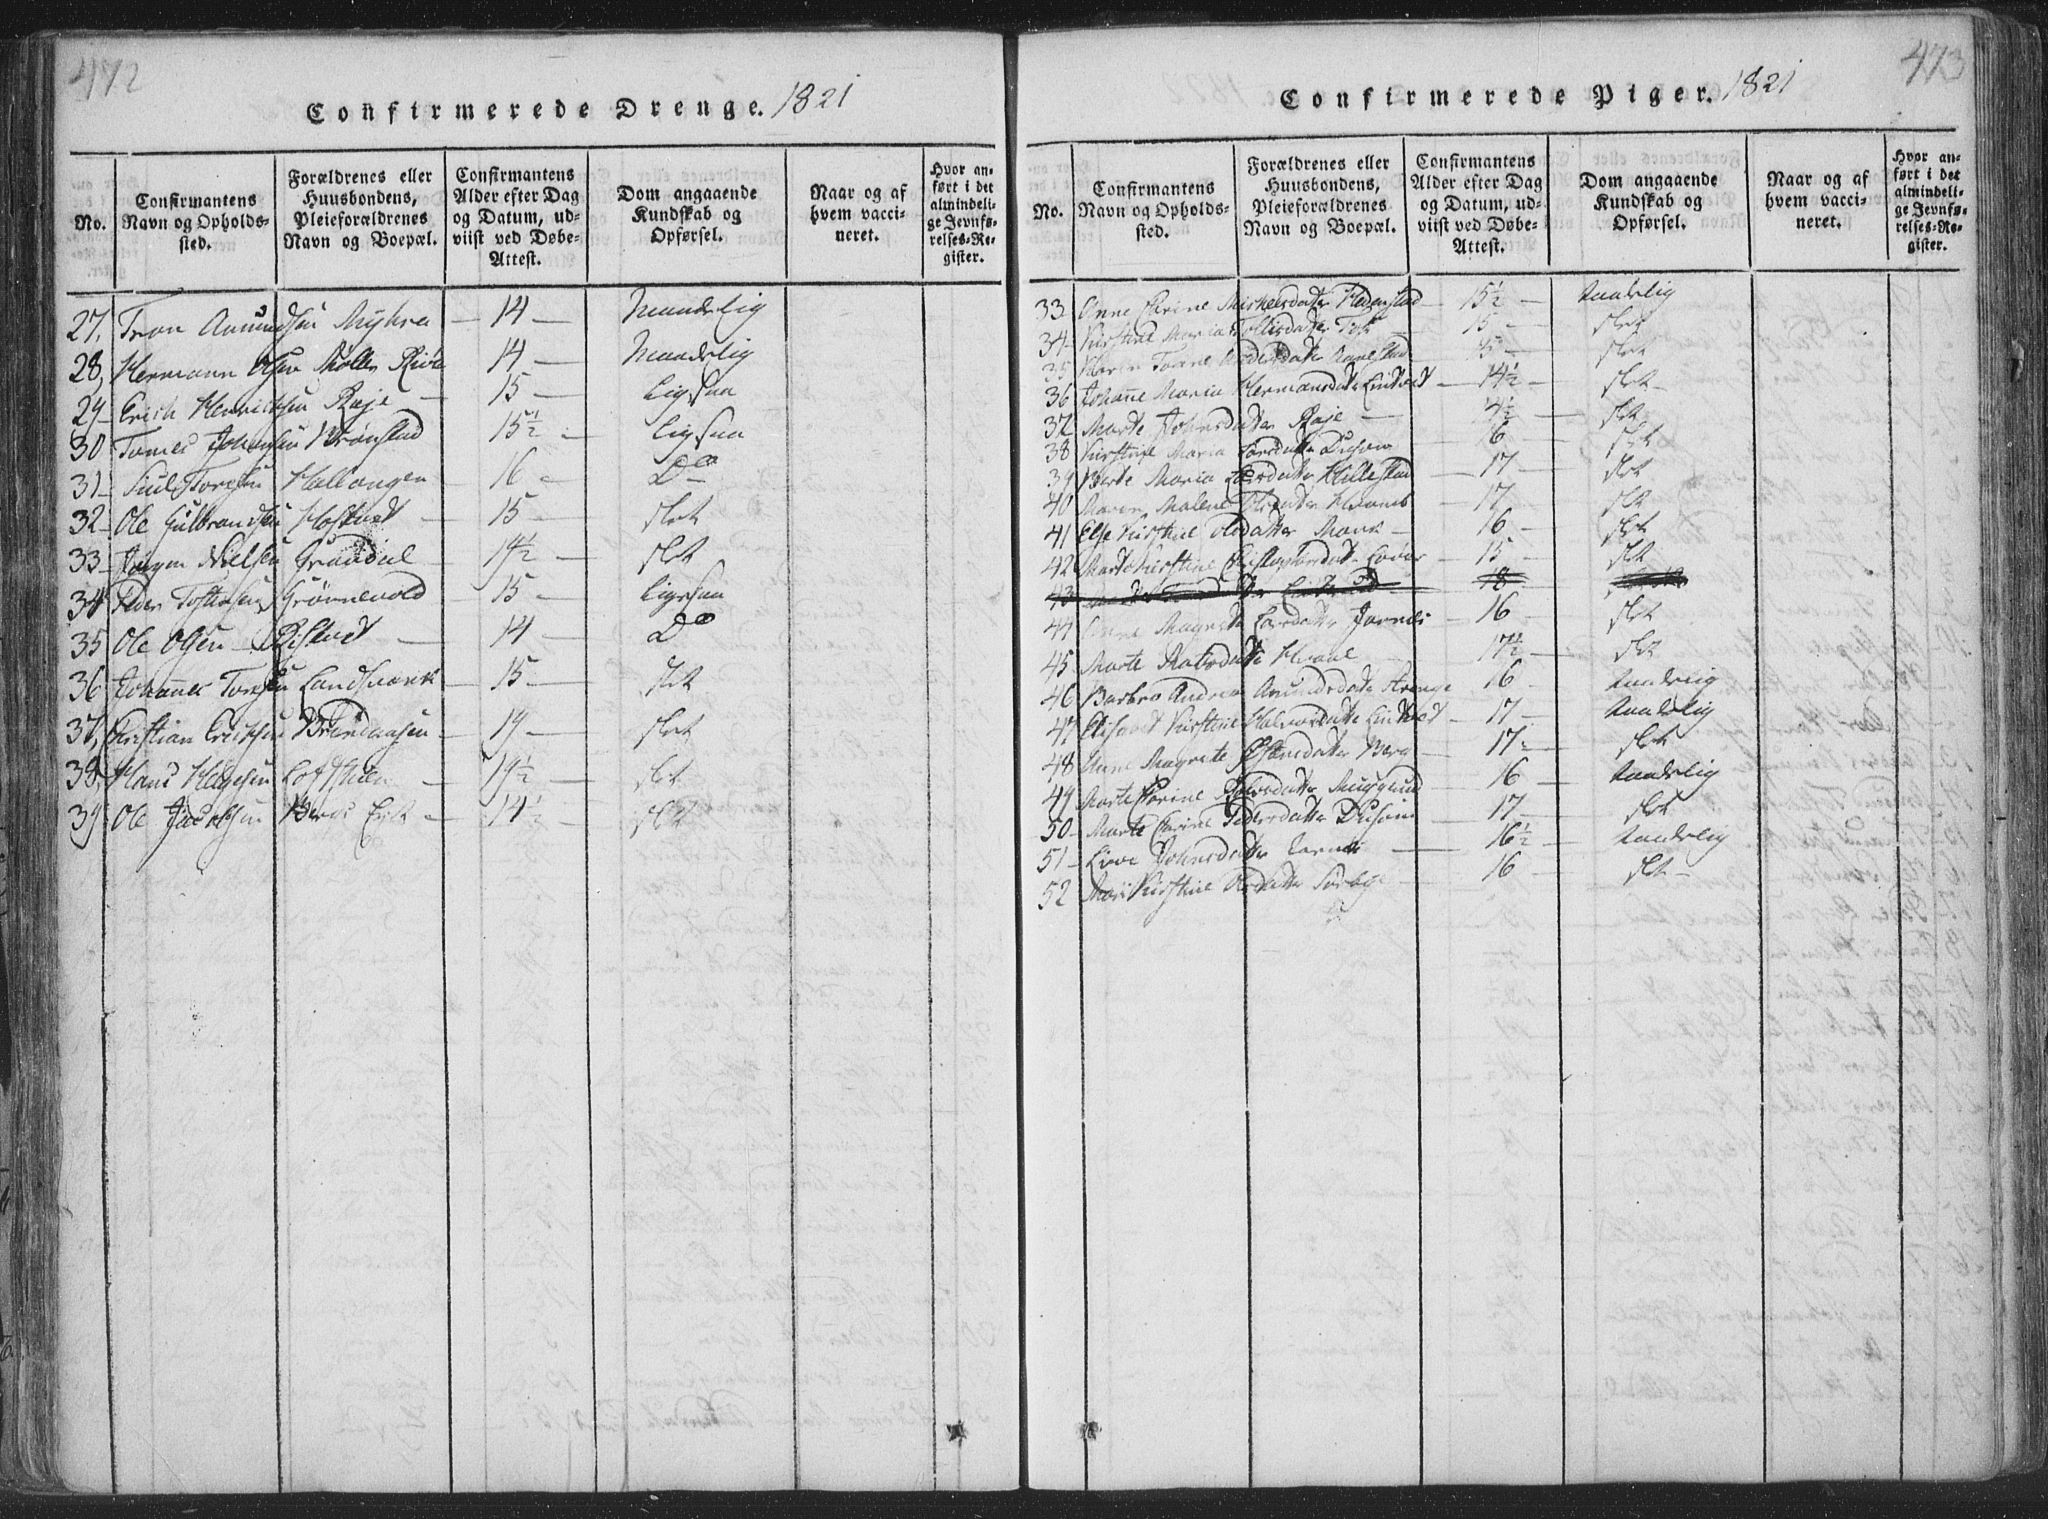 472
Confirmerede Drenge. 1821
No.
Confirmantens Navn og Opholds-sted.
Forældrenes eller Huusbondens, Pleieforældrenes Navn og Boepæl.
Confirmantens Alder efter Dag og Datum, ud-viist ved Døbe-Attest.
Dom angaaende Kundskab og Opførsel.
Naar og af hvem vacci-neret.
Hvor an-ført i det almindeli-ge Jevnfø-relses-Re-gister.
27, Tron Amundsen Myhra - 14 - Maadelig
28, Hermann Olsen 14 - Maadelig
29 Erich Henrichsen Raje - 15 - Ligesaa
30 Tomes Johansen Brønstad 15½ - Ligesaa
31 - Siul Toresen Hallangen - 16 - Do
32 - Ole Gulbrandsen Hostvet - 15 - slet
33 - Jørgen Nielsen 14½ - slet
34 Peder Tostensen Grønnevold - 15 - Ligesaa
35 Ole Olsen Ristvet - 14 - Do
36 Johannes Toresen Landsværk - 15 - slet
37, Christian Erichsen - 19 - slet
38, Hans - 19½ - slet
39 Ole Jacobsen Berg 14½ - slet
473
Confirmerede Piger. 1821
No.
Confirmantens Navn og Opholds-sted.
Forældrenes eller Huusbondens, Pleieforældrenes Navn og Boepæl.
Confirmantens Alder efter Dag og Datum, ud-viist ved Døbe-Attest.
Dom angaaende Kundskab og Opførsel.
Naar og af hvem vacci-neret.
Hvor an-ført i det almindeli-ge Jevnfø-relses-Re-gister.
33 Anne Karine Mickelsdatter Hedenstad 15½ - Maadelig
34 - Kirstine Maria Tollefsdatter 15 - slet
35 Maren Andersdatter 15 - slet
36 Johanne Maria Hermansdatter Lindtvedt - 14½ - slet
37 Marte Johnsdatter Raje - 14½ - slet
38 Kirstine Maria Larsdatter 16 slet
39 Berte Maria Larsdatter Hillestad - 17 - slet
40 Maren Malene Olsdatter 17 - slet
41 Else Kirstine Olsdatter - 16 - slet
42 Marte Kirstine Christophersdatter - 15 - slet
43 18
44 Anne Magrete Larsdatter Jarnes 16 - slet
45 Marte 17½ - slet
46 Barbro Andrea Amundsdatter 16 - Maadelig
47 Elisabet Kirstine Halvorsdatter Lindtvedt - 17 - Maadelig
48 Anne Magrete Østensdatter Berg - 17 - slet
49 Marte Karine 16 Maadelig
50 - Marte Karine Pedersdatter 17 - slet
51 - Live Johnsdatter - 16½ - Maadelig
52 Mari Kirstine Olsdatter Sørbye - 16 slet -